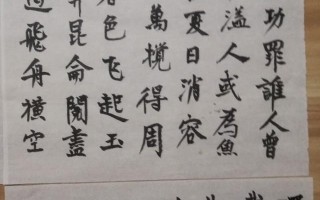 功罪誰人曾
溢人或為魚
夏日消容
萬攪得周
色飞起玉
昆侖閱盡
飛舟橫空